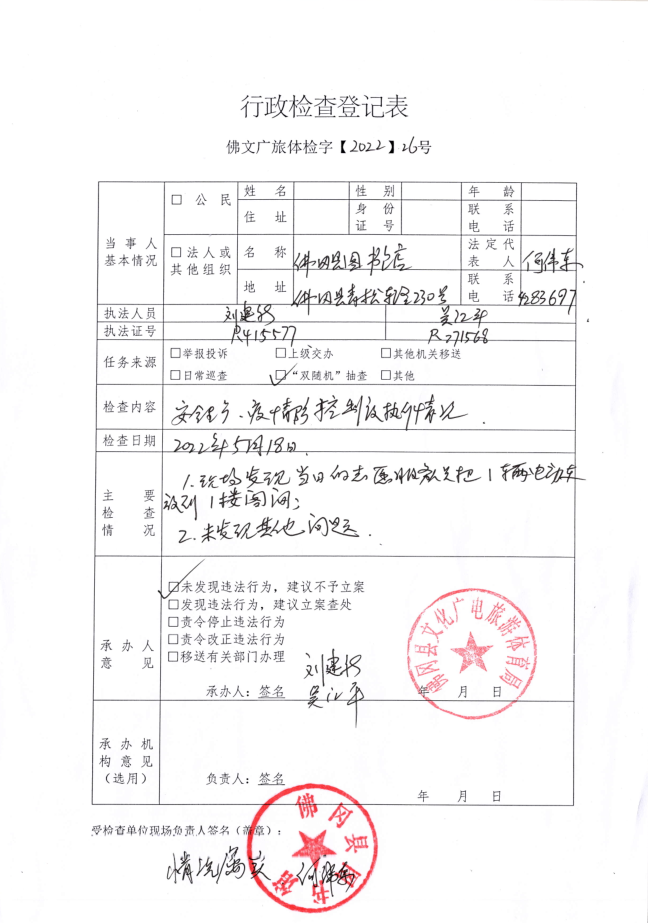 行政检查登记表
佛文广旅体检字【2022】26号
当事人基本情况
□ 公民
姓名
性别
年龄
住址
身份证号
联系电话
□ 法人或其他组织
名称 佛冈县图书馆
法定代表人 何伟东
地址 佛冈县青松东路230号
联系电话 4283697
执法人员 刘建 吴江平
执法证号 R415577 R271568
任务来源
□举报投诉 □上级交办 □其他机关移送
□日常巡查 □“双随机”抽查 □其他
检查内容 安全生产、疫情防控制议执行情况
检查日期 2022年5月18日
主要检查情况
1.现场发现当日的志愿服务员把1辆电动车
放到1楼房间;
2.未发现其他问题.
承办人意见
□未发现违法行为，建议不予立案
□发现违法行为，建议立案查处
□责令停止违法行为
□责令改正违法行为
□移送有关部门办理
刘建
承办人：签名 吴江平 年 月 日
佛冈县文化广电旅游体育局
承办机构意见（选用）
负责人：签名
年 月 日
受检查单位现场负责人签名（盖章）：
情况属实 何伟东
佛冈县图书馆